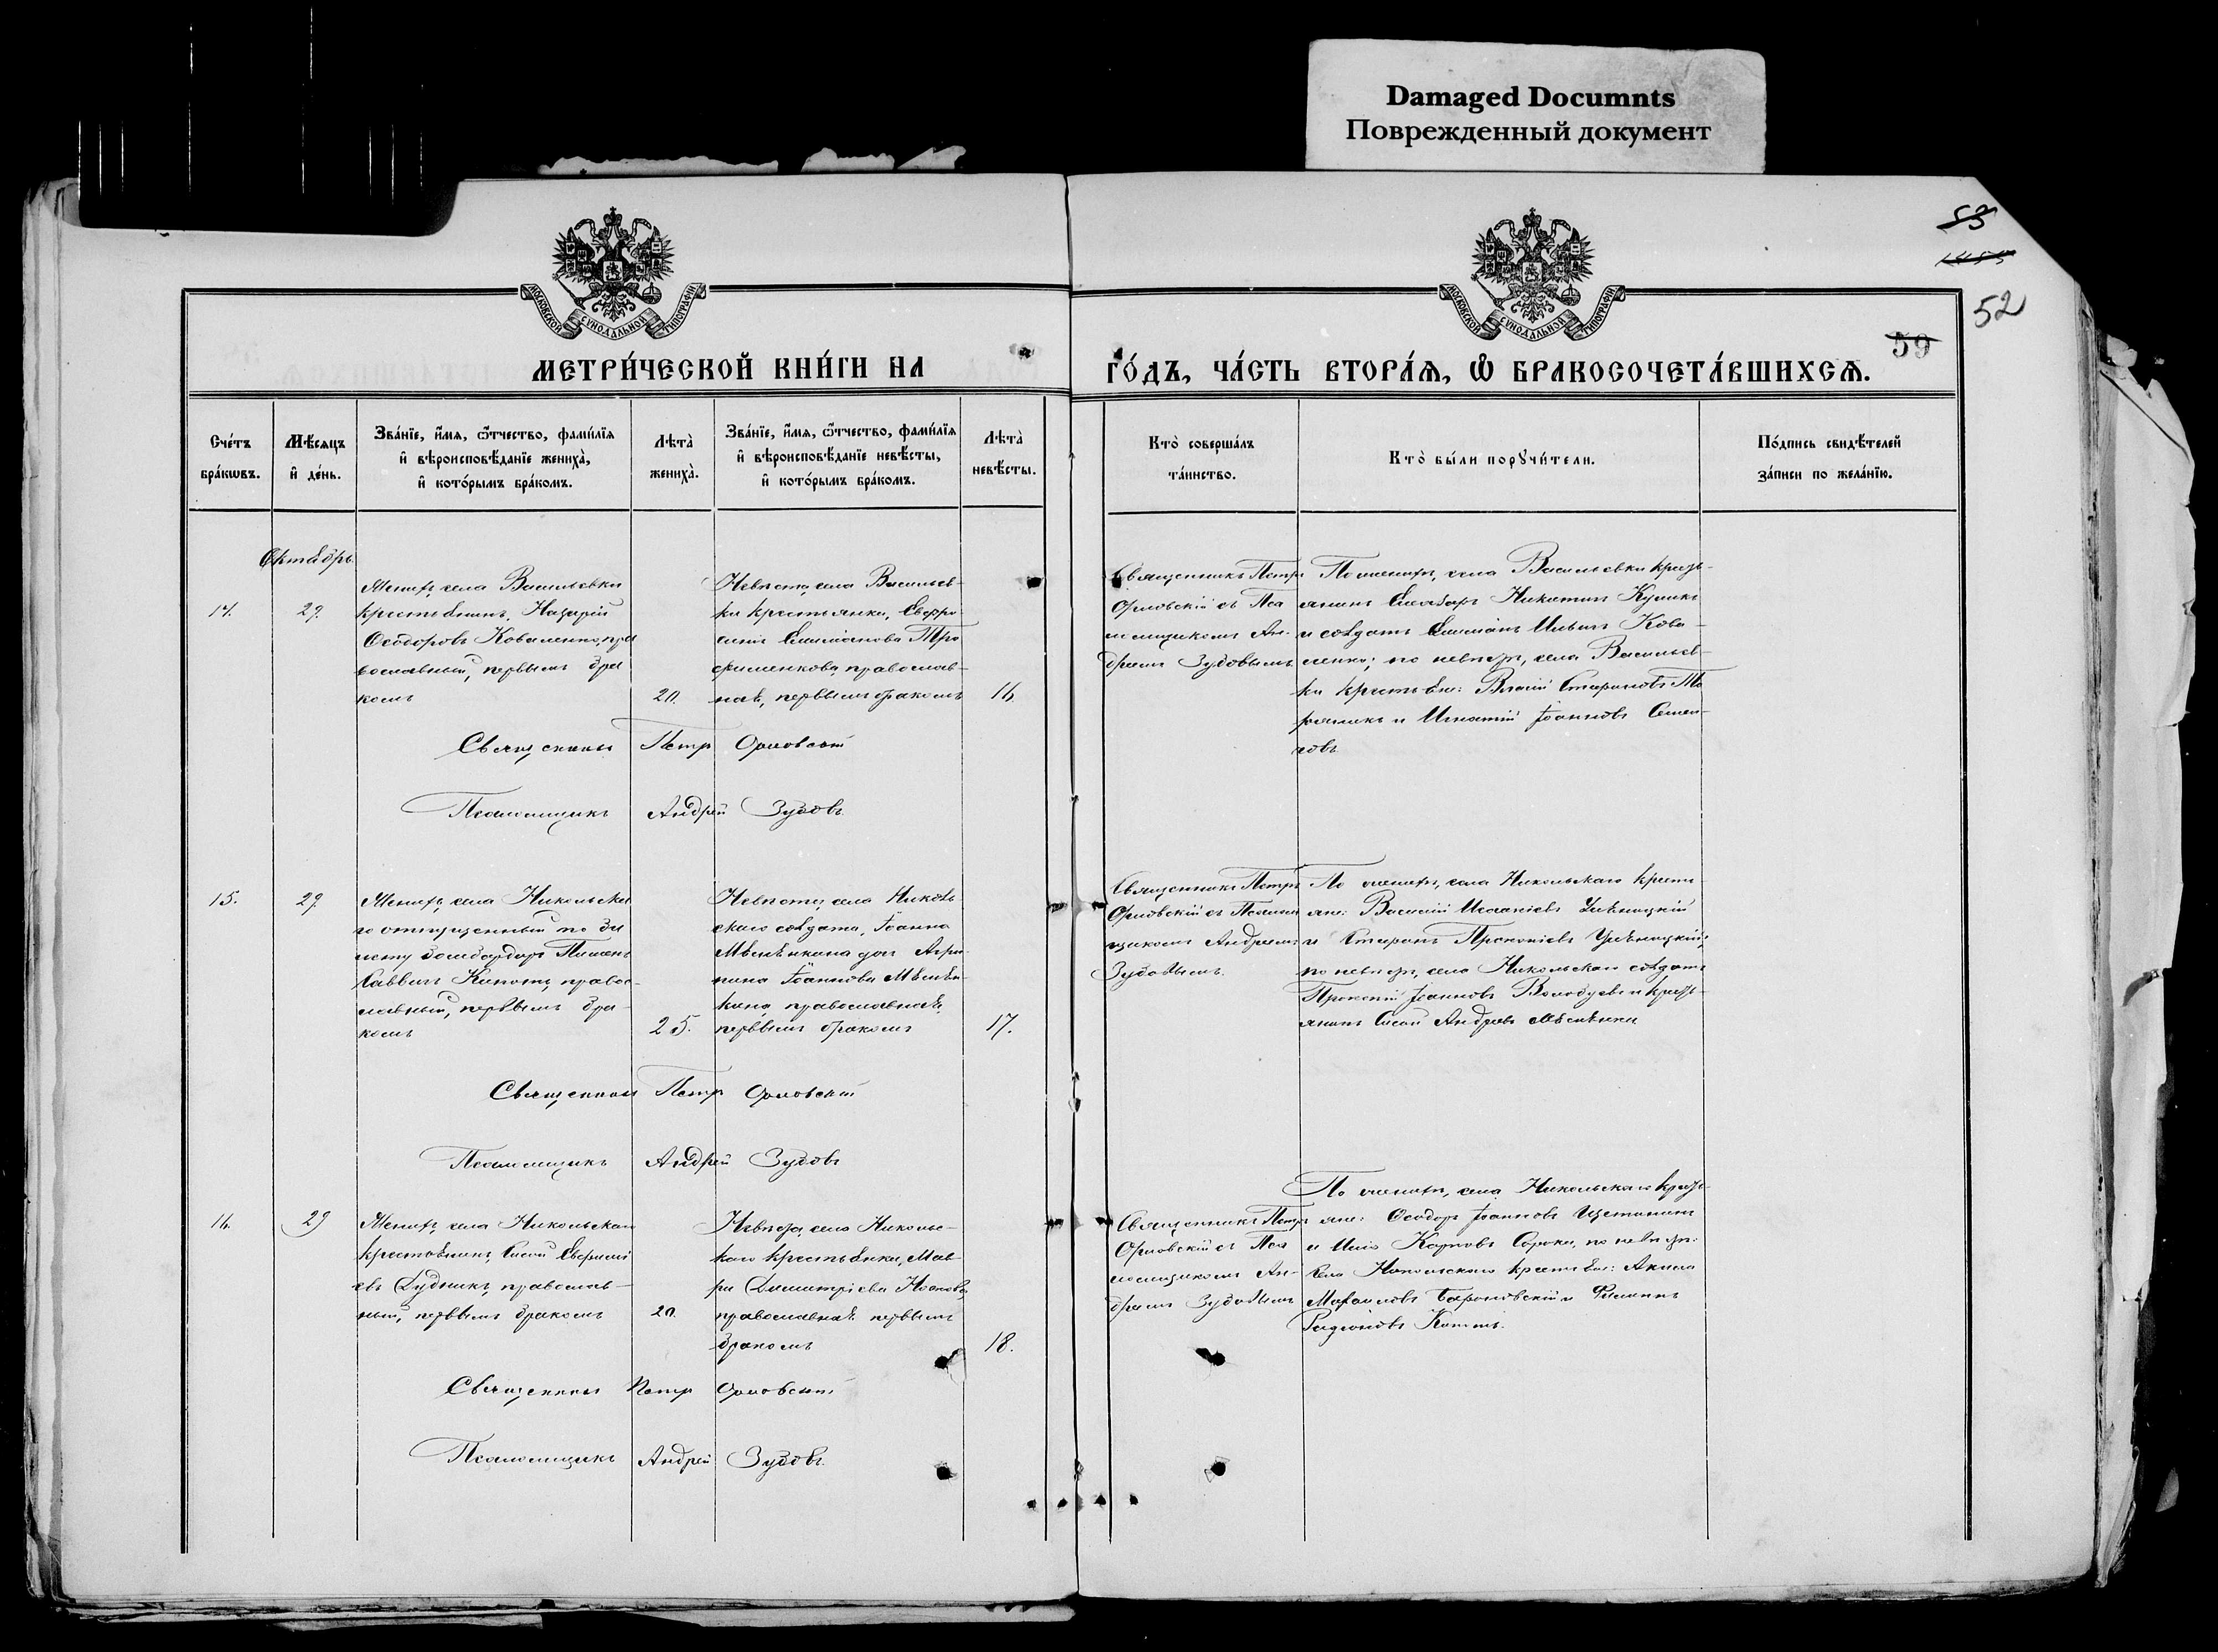 Damaged Documnts
Поврежденный документ
53
52
59
МОСКОВСКОЙ СѴНОДАЛЬНОЙ ТИПОГРАФІИ
МОСКОВСКОЙ СѴНОДАЛЬНОЙ ТИПОГРАФІИ
МЕТРИ́ЧЕСКОЙ КНИ́ГИ НА
ГО́ДЪ, ЧА́СТЬ ВТОРА́Ѧ, Ѡ҆ БРАКОСОЧЕТА́ВШИХСѦ.
Сче́тъ
бра́кѡвъ.
Мѣ́сяцъ
и҆ де́нь.
Зва́нїе, и҆́мя, ѻ҆́тчество, фами́лїя
и҆ вѣроисповѣ́данїе жениха̀,
и҆ кото́рымъ бра́комъ.
Лѣта̀
жениха̀.
Зва́нїе, и҆́мя, ѻ҆́тчество, фами́лїя
и҆ вѣроисповѣ́данїе невѣ́сты,
и҆ кото́рымъ бра́комъ.
Лѣта̀
невѣ́сты.
Кто̀ соверша́лъ
та́инство.
Кто̀ бы́ли порꙋчи́тели.
По́дпись свидѣ́телей
за́писи по жела́нїю.
Октябрь
14.
29.
Женихъ, села Васильевки
крестьянинъ, Назарій
Ѳеодоровъ Коваленко, пра
вославный, первымъ бра
комъ
20.
Невѣста, села Васильев-
ки крестьянка, Евфро
синія Симеонова Тро
фименкова, православ-
ная, первымъ бракомъ
16.
Священникъ Петръ
Орловскій съ Пса
ломщикомъ Ан-
дреемъ Зубовымъ
По женихѣ, села Васильевки кресть-
янинъ Никитинъ Куликъ
и солдатъ Симеонъ Ильинъ Кова-
ленко; по невѣстѣ, села Васильев-
ки крестьяне: Власій
и Игнатій Іоанновъ Семен-
човъ.
Священникъ Петръ Орловскій
Псаломщикъ Андрей Зубовъ.
15.
29.
Женихъ, села Никольска
го отпущенный по би
лету бомбардиръ Пименъ
Саввинъ правос-
лавный, первымъ бра-
комъ
25.
Невѣста, села Николь
скаго солдата, Іоанна
дочь Агри-
пина Іоаннова
православная,
первымъ бракомъ
17.
Священникъ Петръ
Орловскій съ Псалом
щикомъ Андреемъ
Зубовымъ.
По женихѣ, села Никольскаго кресть-
яне: Василій
и Прокопіевъ
по невѣстѣ, села Никольскаго солдатъ
Іоанновъ Володуевъ и кресть-
янинъ Сисой Андреевъ
Священникъ Петръ Орловскій
Псаломщикъ Андрей Зубовъ
16.
29
Женихъ, села Никольскаго
крестьянинъ, Сисой Евфимі
евъ Дудникъ, православ-
ный, первымъ бракомъ
20.
Невѣста, села Николь-
скаго крестьянка, Мав-
ра Димитріева
православная первымъ
бракомъ
18.
Священникъ Петръ
Орловскій съ Пса
ломщикомъ Ан-
дреемъ Зубовымъ
По женихѣ, села Никольскаго кресть-
яне: Ѳеодоръ Іоанновъ Щетининъ
и Илія Карповъ Сорока, по невѣстѣ:
села Никольскаго крестьяне: Акила
и Филиппъ
Родіоновъ
Священникъ Петръ Орловскій
Псаломщикъ Андрей Зубовъ.